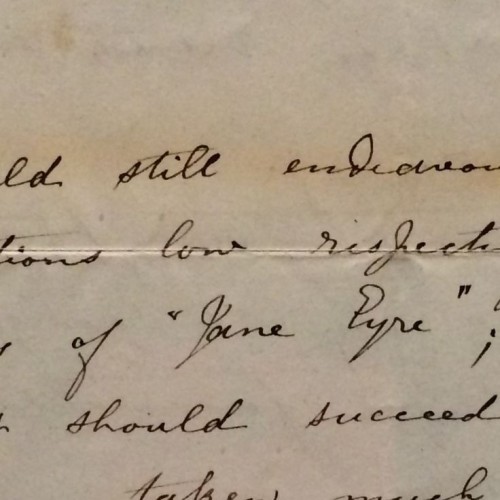 ld still endeavou
tions low respecti
y of "Jane Eyre";
should succeed
taken much